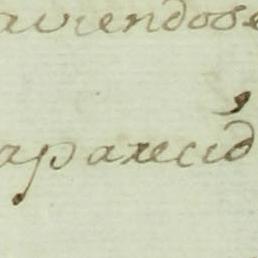 aviendose
aparecid